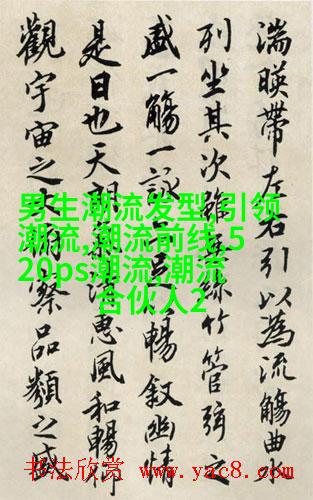 湍暎帶左右引以為流觴曲
列坐其次雖無絲竹管弦之
盛一觴一詠足暢叙幽情
是日也天朗氣清惠風和暢仰
觀宇宙之大俯察品類之盛
男生潮流发型,引领
潮流,潮流前线,5
20ps潮流,潮流
合伙人2
书法欣赏 www.yac8.com